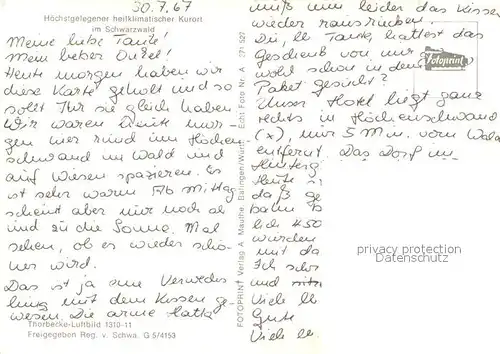 30.7.67
Höchstgelegener heilklimatischer Kurort
im Schwarzwald
Meine liebe Tante!
Mein lieber Onkel!
Heute morgen haben wir
diese Karte geholt und so
sollt Ihr sie gleich haben.
Wir waren heute mor-
gen hier rund um Höchen
schwand im Wald und
auf Wiesen spazieren. Es
ist sehr warm. Ab Mittag
scheint aber nur noch ab
und zu die Sonne. Mal
sehen, ob es wieder schö-
ner wird.
Das ist ja eine Verwechs
lung mit dem Kissen ge-
wesen. Die arme
Thorbecke-Luftbild 1310-11
Freigegeben Reg. v. Schwa. G 5/4153
FOTOPRINT Verlag A. Mauthe, Balingen/Württ. - Echt Foto Nr. A 271 527
muß nun leider das Kissen
wieder rausrücken.
Du, lb. Tante, hattest das
Geschenk von mir
wohl schon in dem
Paket gesucht?
Fotoprint
Unser Hotel liegt ganz
rechts in Höchenschwand
(x), nur 5 Min. vom Wald
entfernt. Das Dorf im
Hinterg
Heute
daß ge
lich 450
würden
mit da
Ich
und
Viele
Gute
Viele
privacy protection
www.